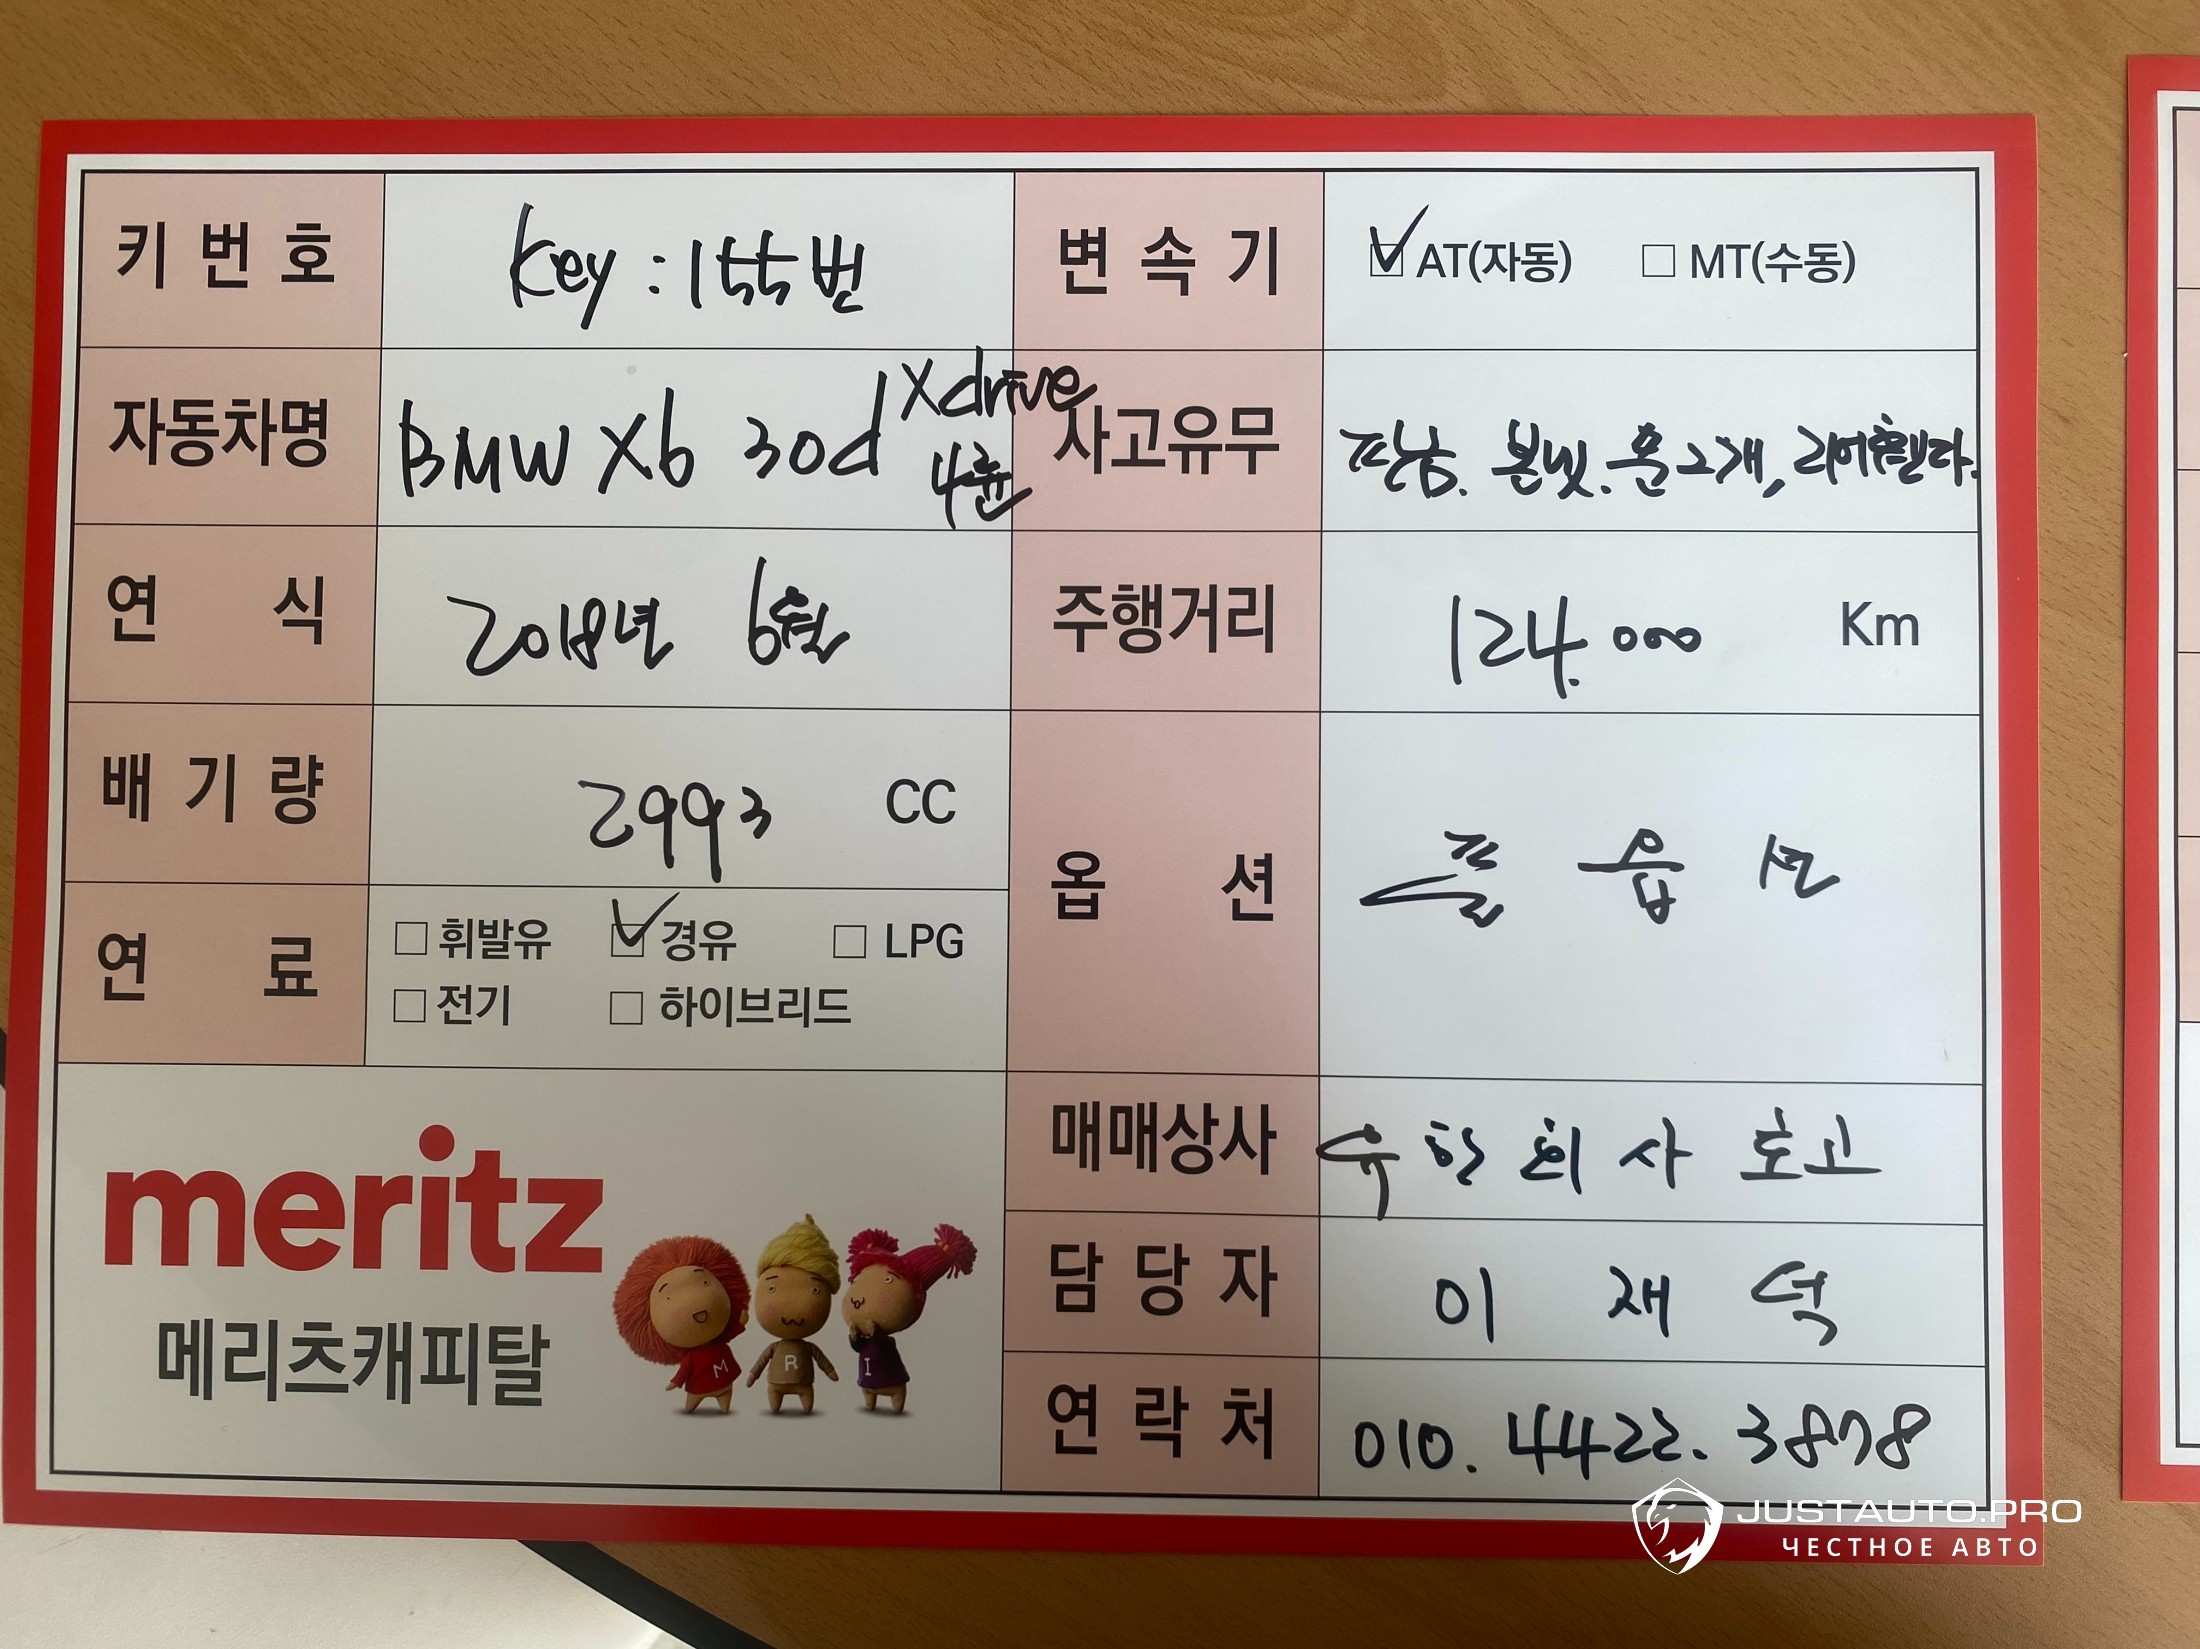 키 번 호 Key : 155번
변 속 기 ☑ AT(자동) ☐ MT(수동)
자동차명 BMW X6 30d Xdrive 4륜
사고유무 본넷. 문2개,
연 식 2018년 6월
주행거리 124.000 Km
배 기 량 2993 CC
옵 션 풀 옵 션
연 료 ☐ 휘발유 ☑ 경유 ☐ LPG
☐ 전기 ☐ 하이브리드
매매상사 유한회사 토고
담 당 자 이 재 덕
연 락 처 010. 4422. 3878
meritz
메리츠캐피탈
M R I
JUSTAUTO.PRO
ЧЕСТНОЕ АВТО